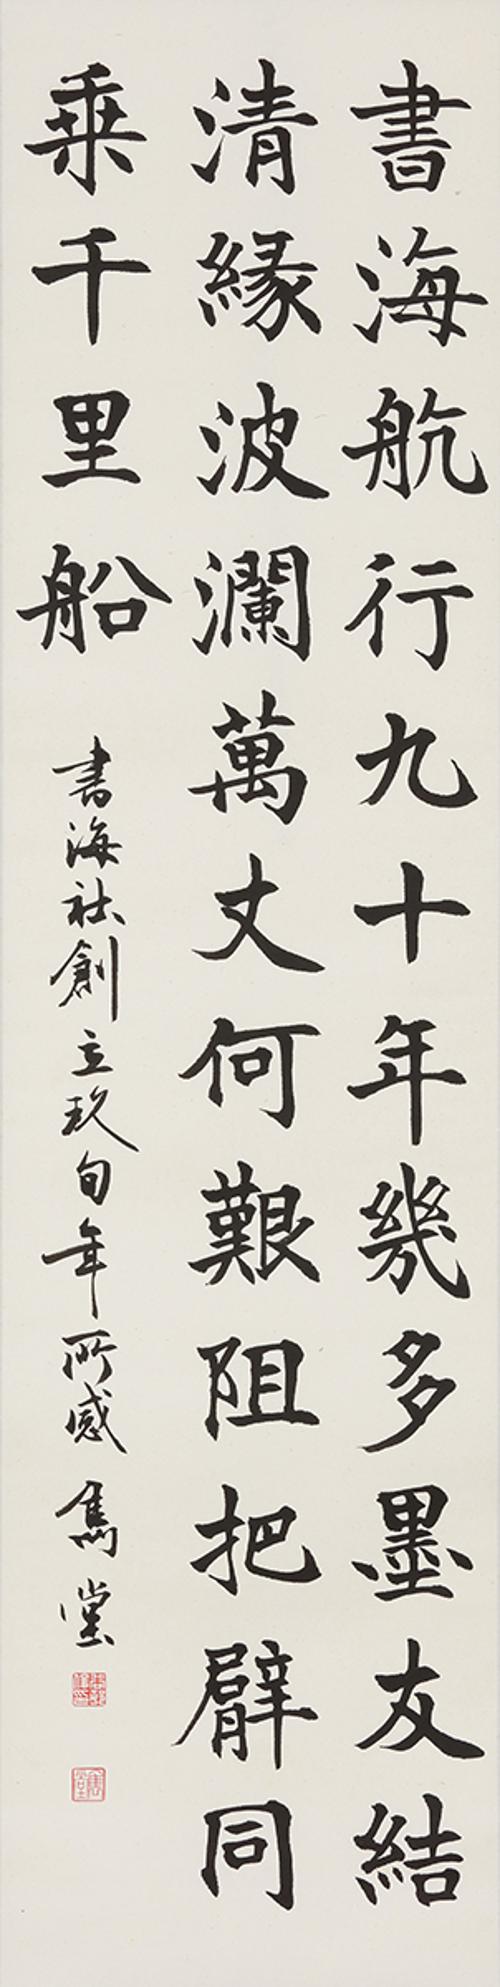 書海航行九十年幾多墨友結
清縁波瀾萬丈何艱阻把臂同
乗千里船
書海社創立玖旬年所感 雋堂